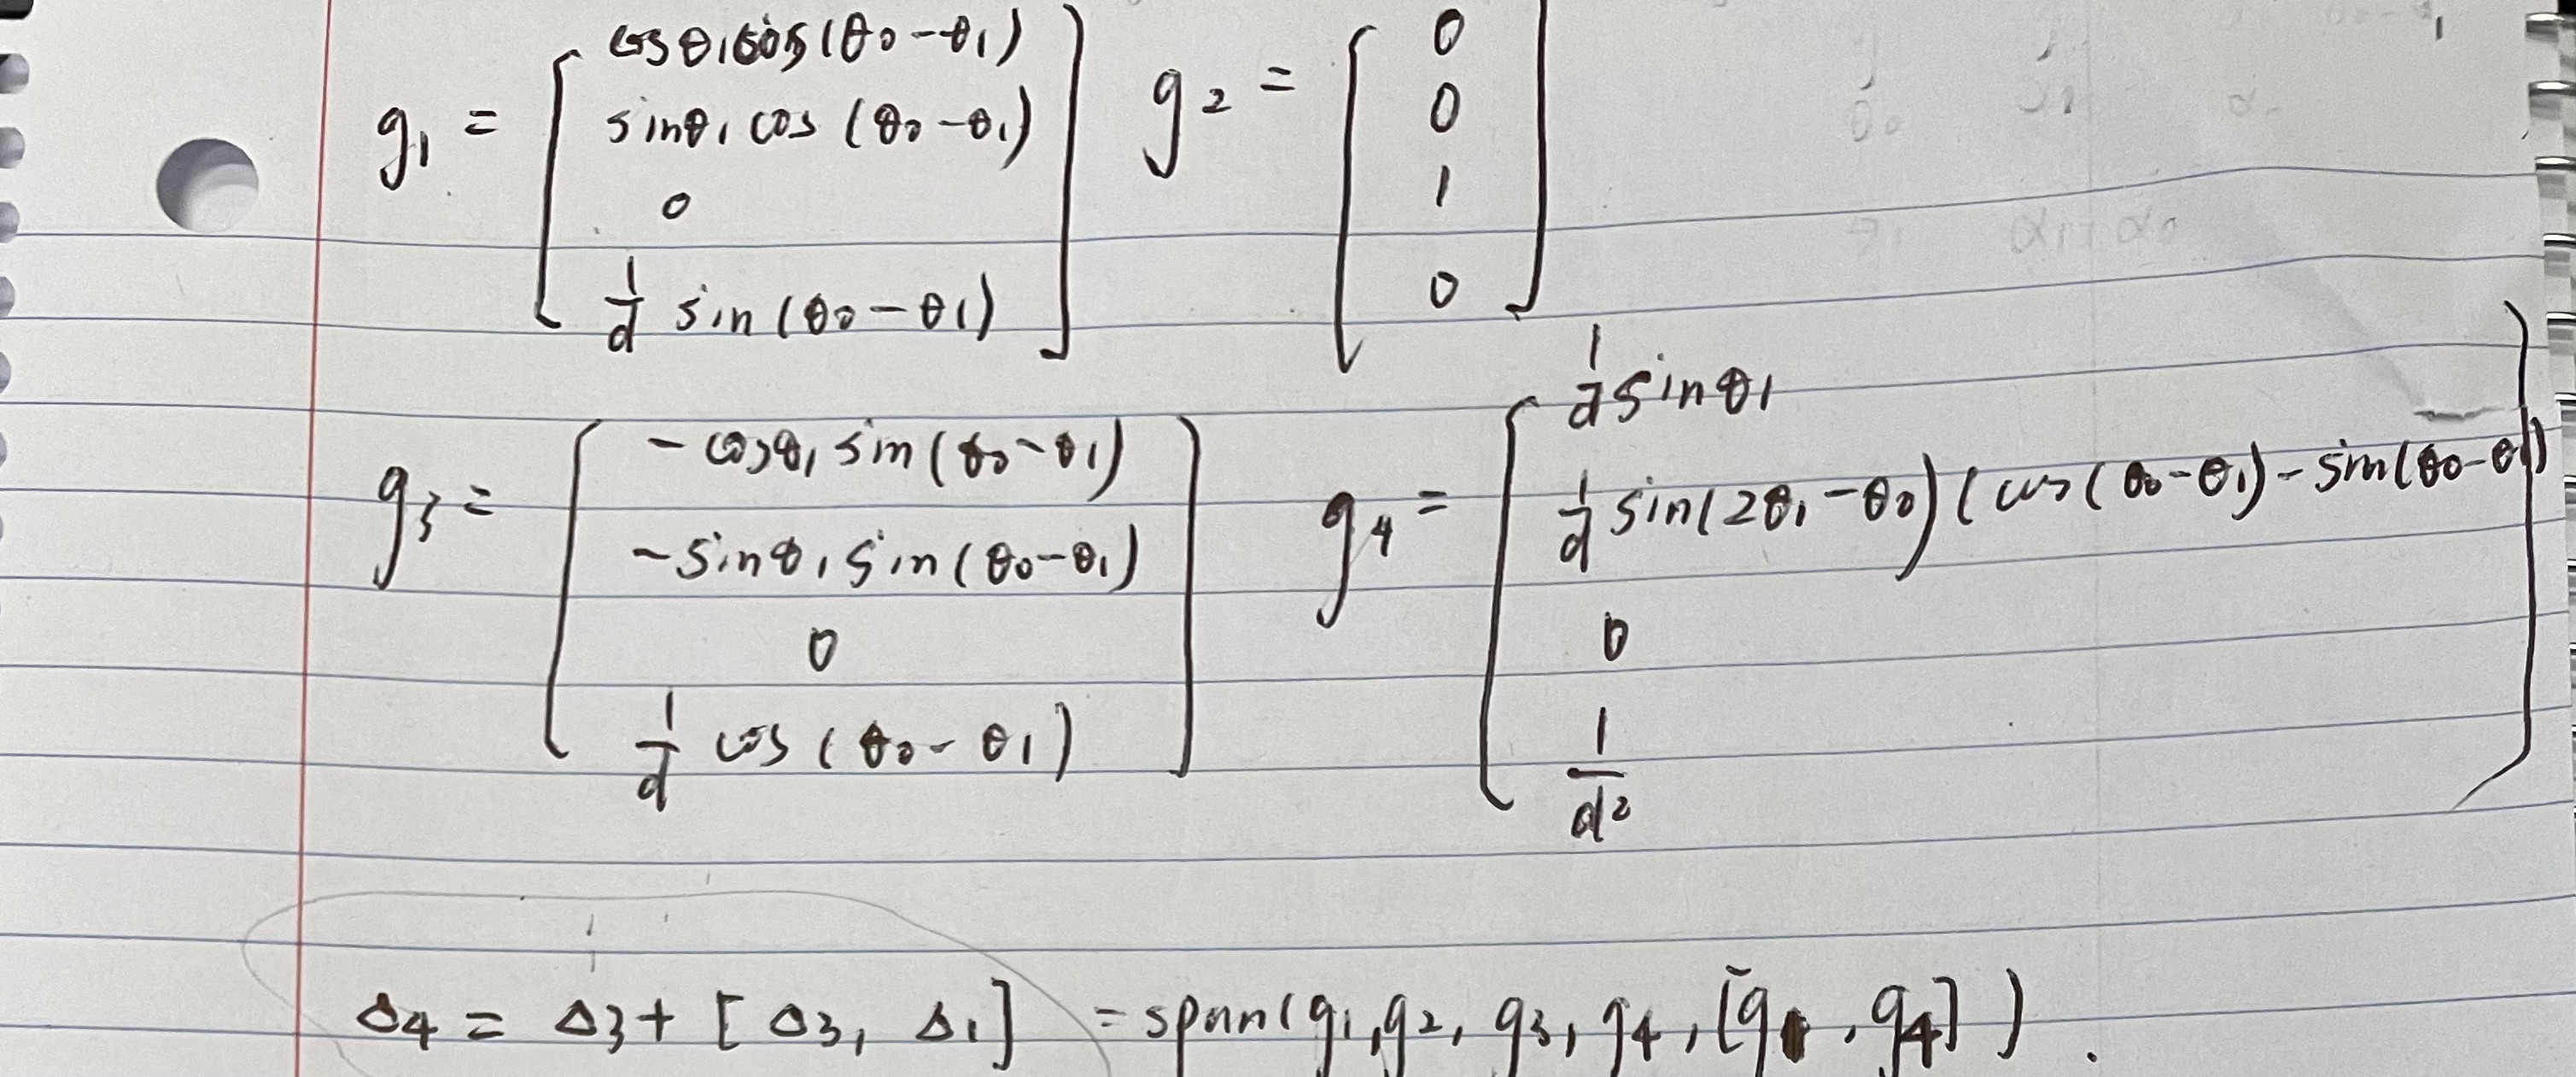 g₁ = [ cosθ₁cos(θ₀-θ₁) ; sinθ₁cos(θ₀-θ₁) ; 0 ; 1/d sin(θ₀-θ₁) ] g₂ = [ 0 ; 0 ; 1 ; 0 ]
g₃ = [ -cosθ₁sin(θ₀-θ₁) ; -sinθ₁sin(θ₀-θ₁) ; 0 ; 1/d cos(θ₀-θ₁) ] g₄ = [ 1/d sinθ₁ ; 1/d sin(2θ₁-θ₀)(cos(θ₀-θ₁)-sin(θ₀-θ₁)) ; 0 ; 1/d² ]
Δ4 = Δ3 + [Δ3, Δ1] = span(g₁, g₂, g₃, g₄, [g₁, g₄]).